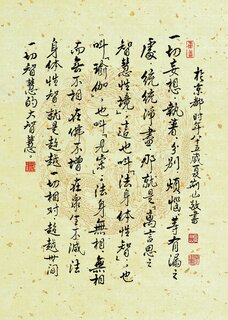 於京都时年八十五歲夏荆山敬書
一切妄想、執着、分别、煩惱等有漏之
處，統統淨盡，那就是離言思之
智慧性境」，這也叫「法身体性智」，也
叫「瑜伽」，也叫「見宗」，法身無相，無相
而無不相，在佛不增，在衆生不減，法
身体性智就是超越一切相對，超越世间
一切智慧的大智慧。